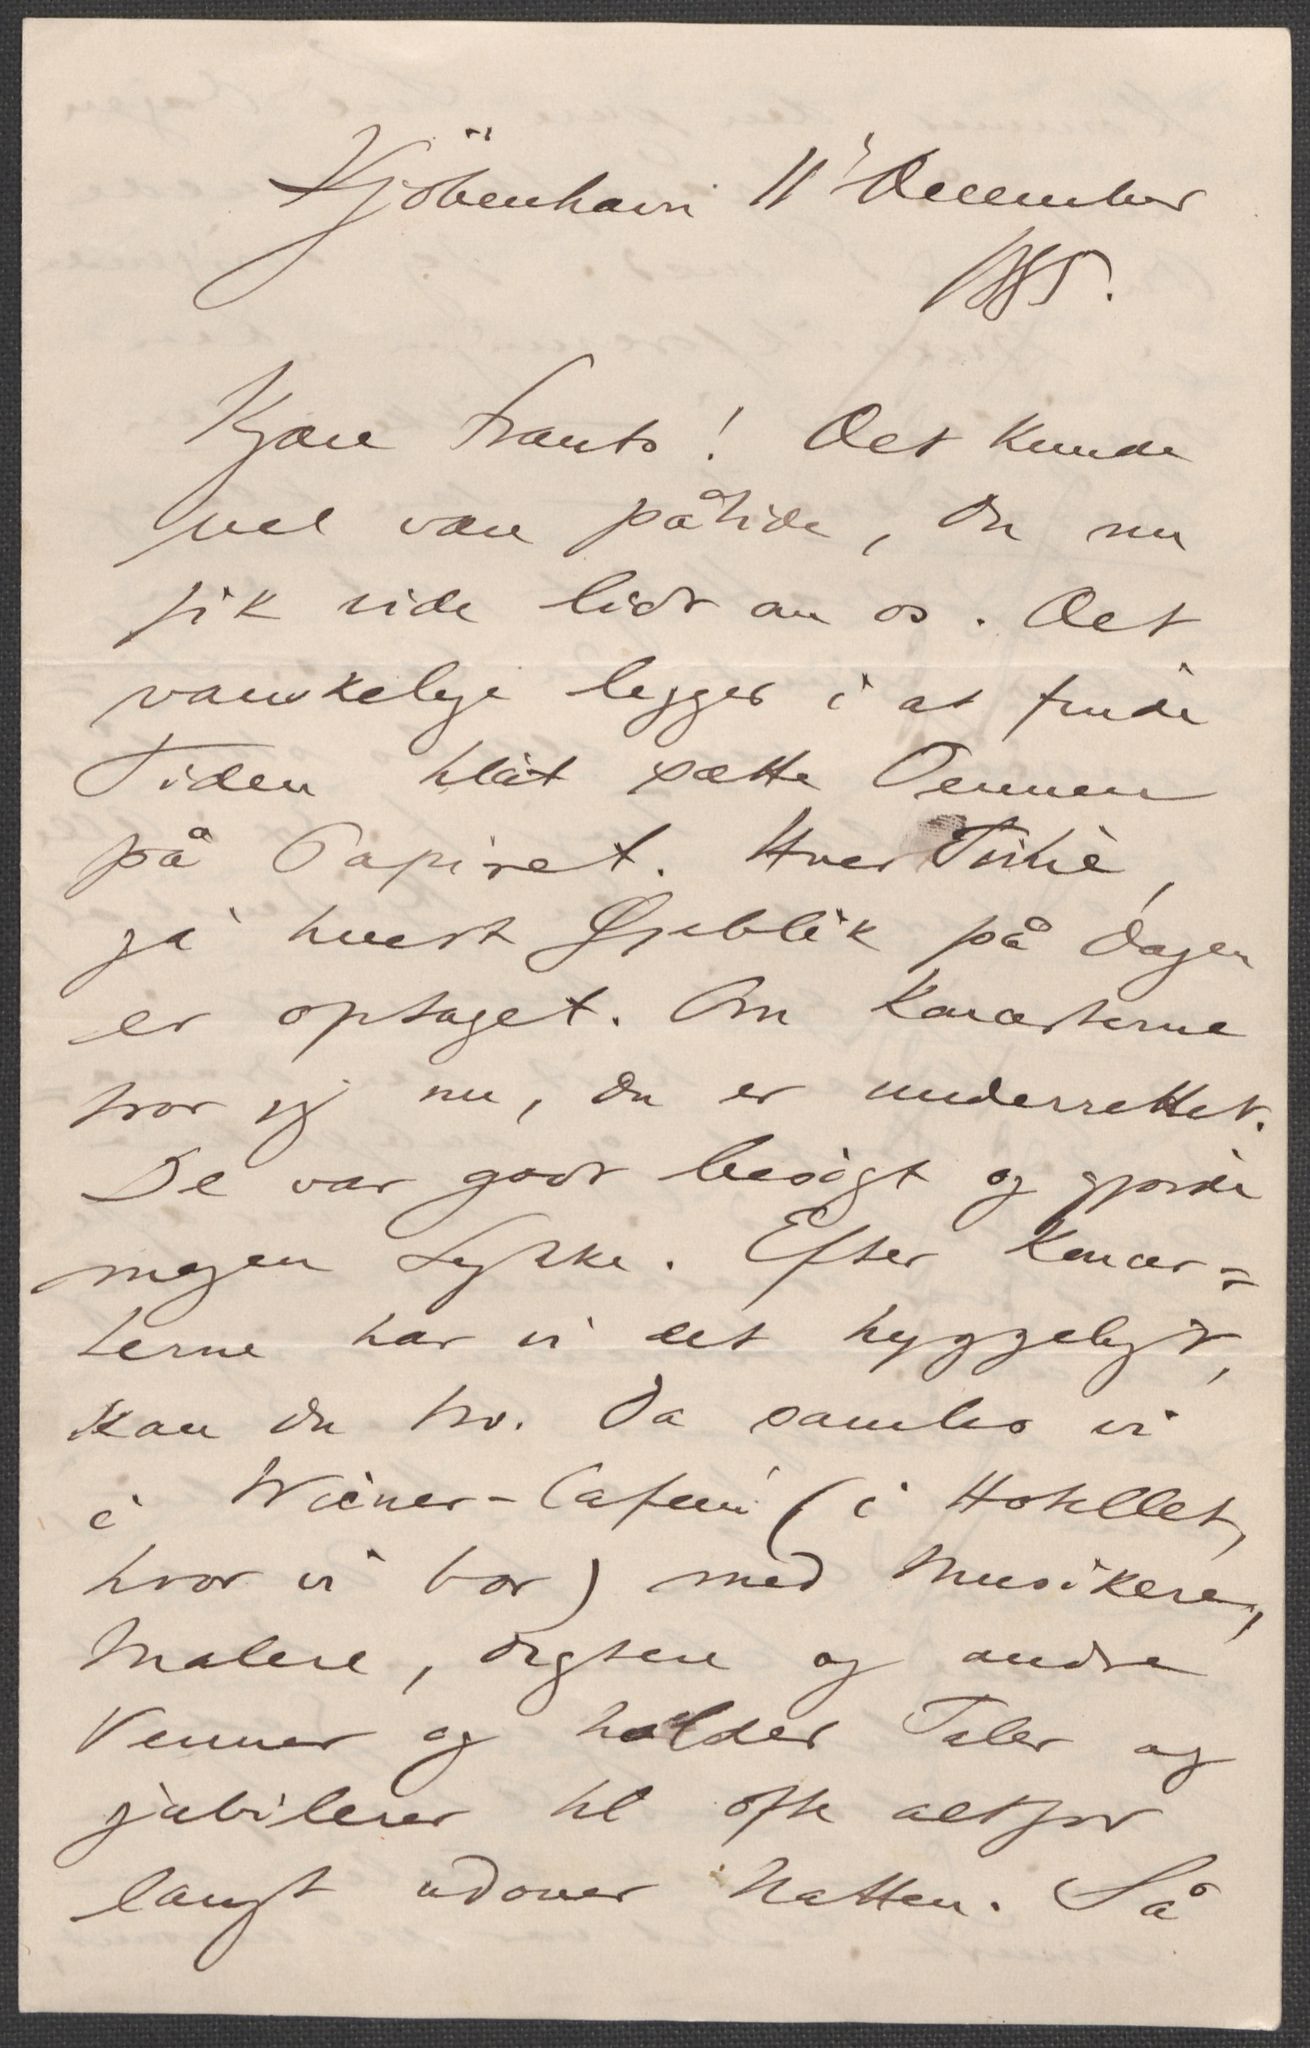 Kjöbenhavn 11' December
1885.
Kjære Frants! Det kunde
vel være påtide, Du nu
fik vide lidt om os. Det
vanskelige ligger i at finde
Tiden til at sætte Pennen
på Papiret. Hver Time,
ja hvert Øjeblik på Dagen
er optaget. Om Koncerterne
tror jeg nu, Du er underrettet.
De var godt besøgt og gjorde
megen Lykke. Efter Koncer=
terne har vi det hyggeligt,
kan Du tro. Da samles vi
i Wiener-Caféen (i Hotellet,
hvor vi bor) med Musikere,
Malere, Digtere og andre
Venner og holder Taler og
jubilerer til ofte altfor
langt udover Natten. Så